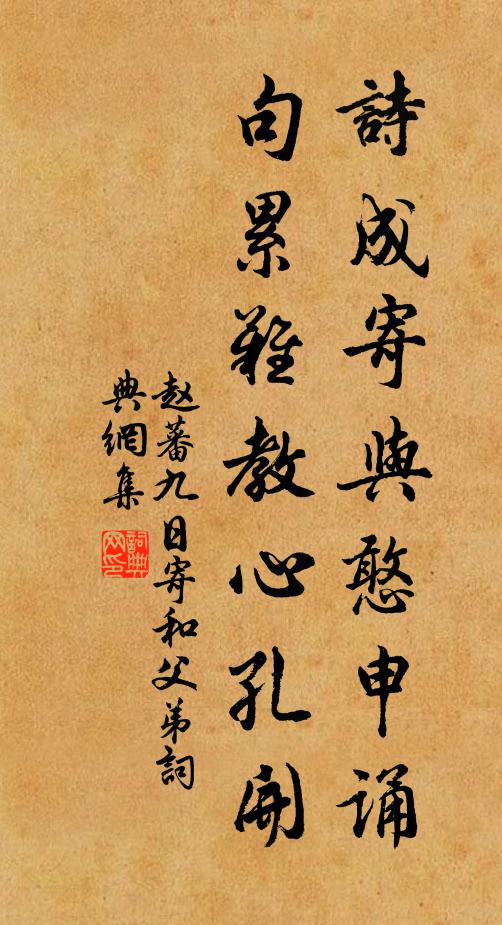 詩成寄與憨申誦
句累難教心孔開
赵蕃九日寄和父弟詞
典網集
詞典网印